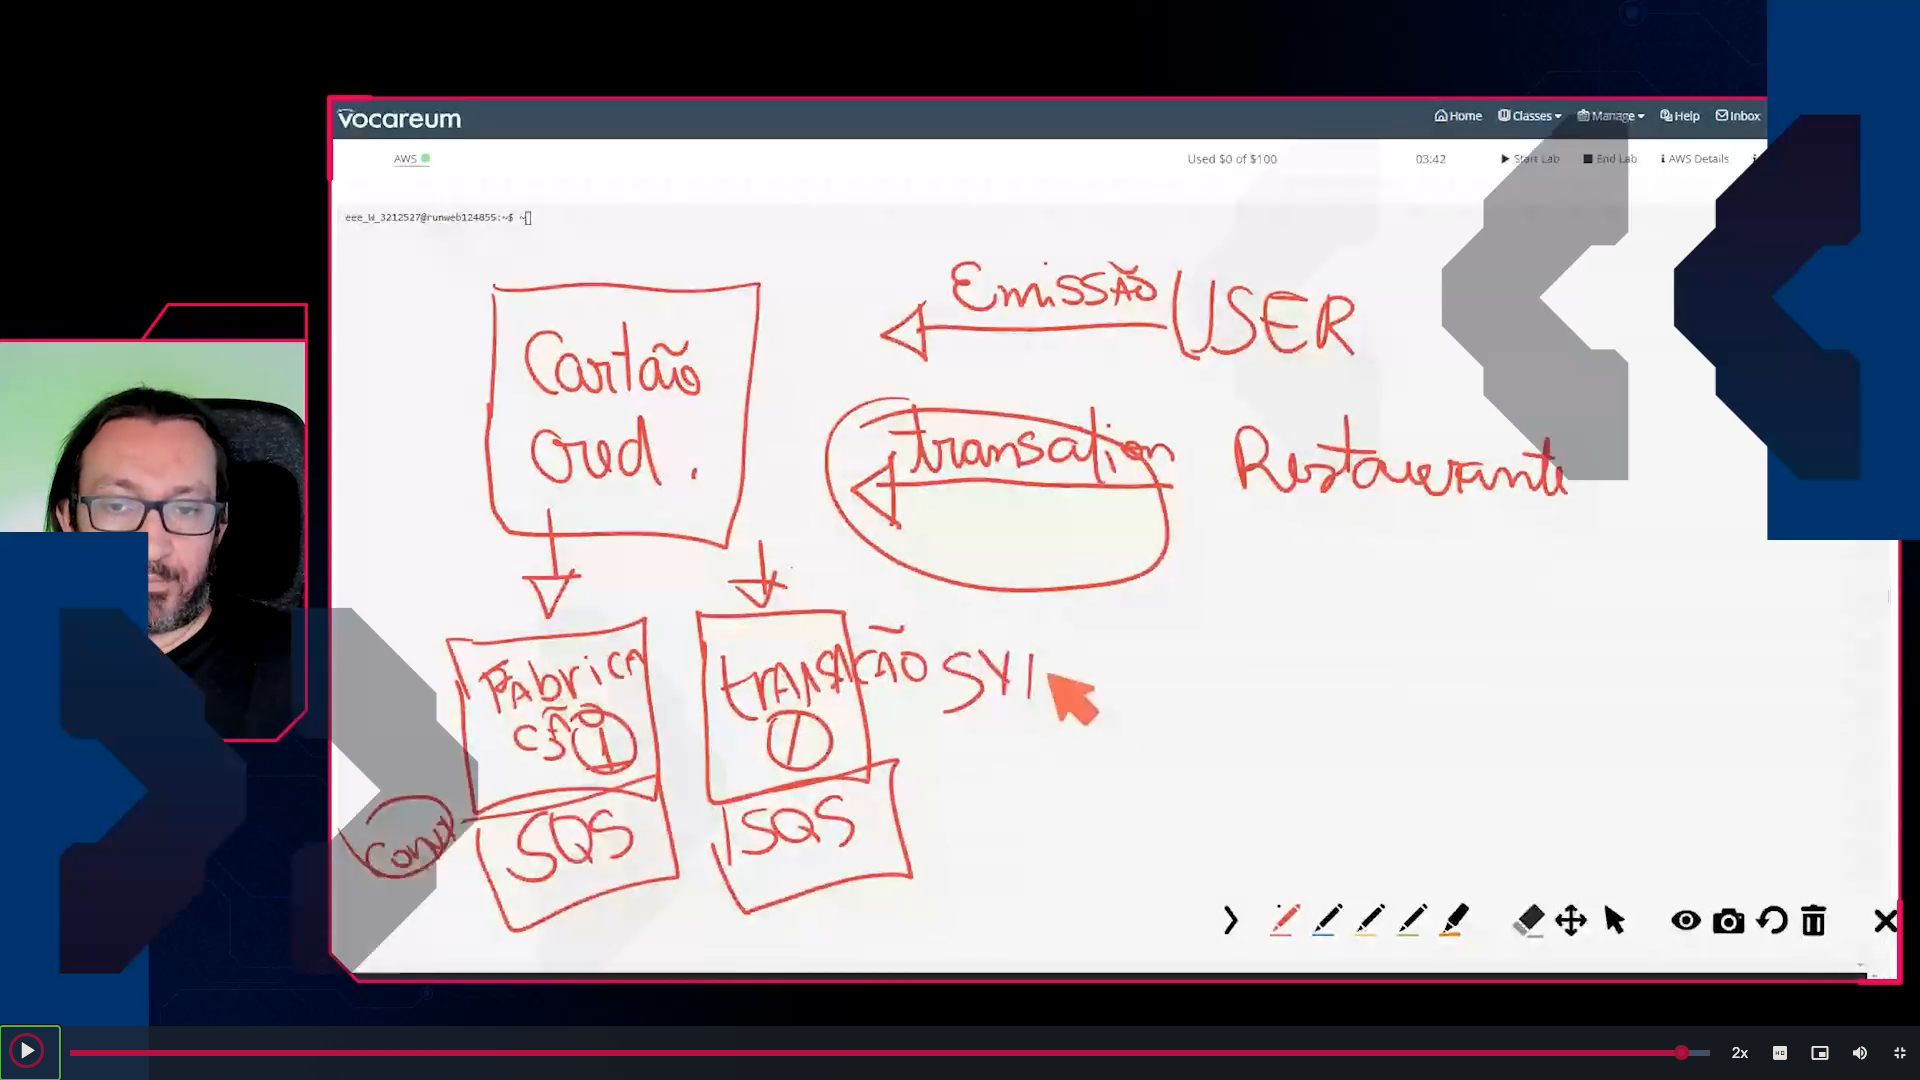 vocareum
Home Classes Manage Help Inbox
AWS
Used $0 of $100 03:42 Start Lab End Lab AWS Details
eee_W_3212527@runweb124855:~$ ~
Emissão USER
Cartão
cred.
transation Restaurante
Fabrica
ção 1
transação SYI
SQS
SQS
2x
HD